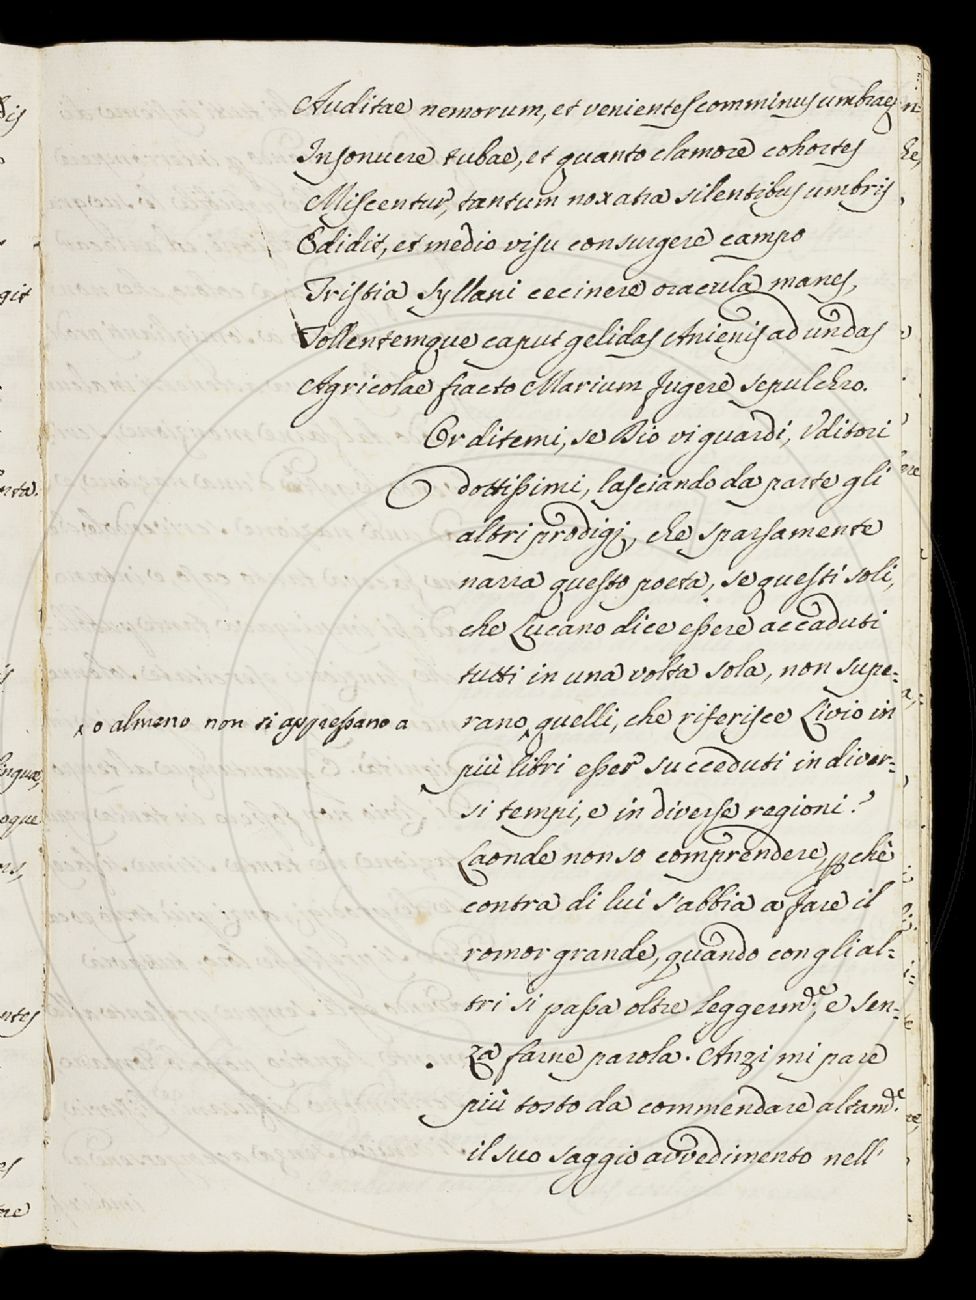 Auditae nemorum, et venientes comminus umbrae
Insonuere tubae, et quanto clamore cohortes
Miscentur, tantum nox atra silentibus umbris
Edidit, et medio visu consurgere campo
Tristia Syllani cecinere oracula manes,
Tollentemque caput gelidas Anienis ad undas
Agricolae fracto Marium fugere sepulchro.
Or ditemi, se Dio vi guardi, Uditori
dottissimi, lasciando da parte gli
altri prodigj, che sparsamente
narra questo poeta, se questi soli,
che Lucano dice essere accaduti
tutti in una volta sola, non supe=
x o almeno non si appressano a
rano x quelli, che riferisce Livio in
più libri esser succeduti in diver=
si tempi, e in diverse regioni?
Laonde non so comprendere, pchè
contra di lui s'abbia a fare il
romor grande, quando con gli al=
tri si passa oltre leggerm.e, e sen=
za farne parola. Anzi mi pare
più tosto da commendare altam.e
il suo saggio avvedimento nell'